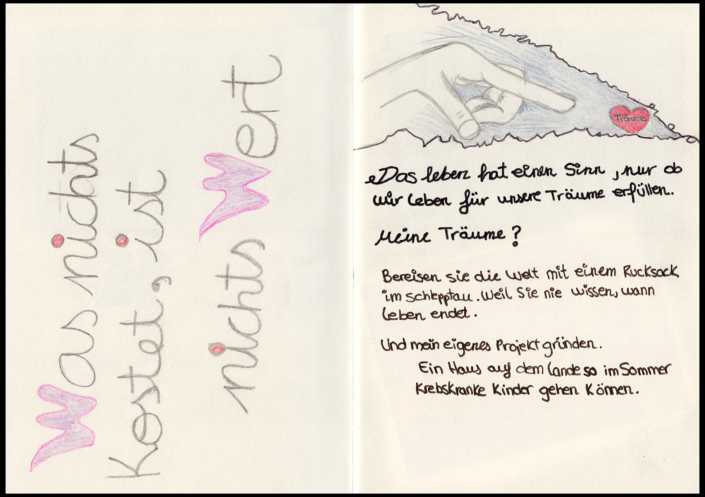 Was nichts
Kostet, ist
nichts Wert
Träume
Das leben hat einen Sinn, nur ob
wir leben für unsere Träume erfüllen..
Meine Träume?
Bereisen sie die Welt mit einem Rucksack
im schlepptau. Weil Sie nie wissen, wann
leben endet.
Und mein eigenes Projekt gründen.
Ein Haus auf dem Lande so im Sommer
Krebskranke Kinder gehen Können.